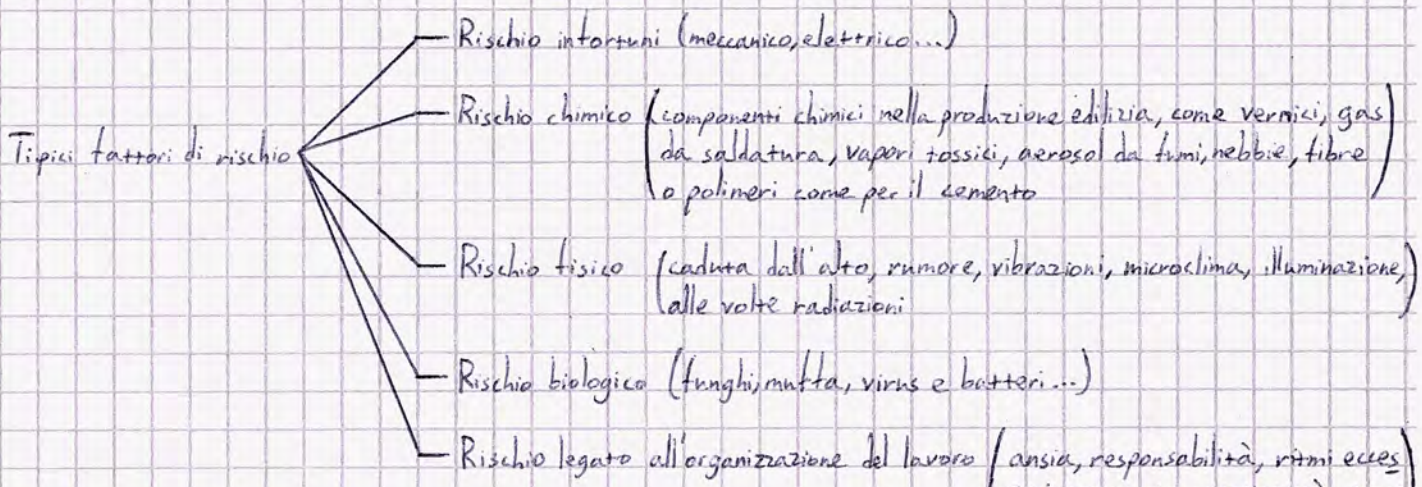 Rischio infortuni (meccanico, elettrico...)
Rischio chimico (componenti chimici nella produzione edilizia, come vernici, gas
da saldatura, vapori tossici, aerosol da fumi, nebbie, fibre
o polimeri come per il cemento)
Tipici fattori di rischio
Rischio fisico (caduta dall'alto, rumore, vibrazioni, microclima, illuminazione,
alle volte radiazioni)
Rischio biologico (funghi, muffa, virus e batteri...)
Rischio legato all'organizzazione del lavoro (ansia, responsabilità, ritmi ecces